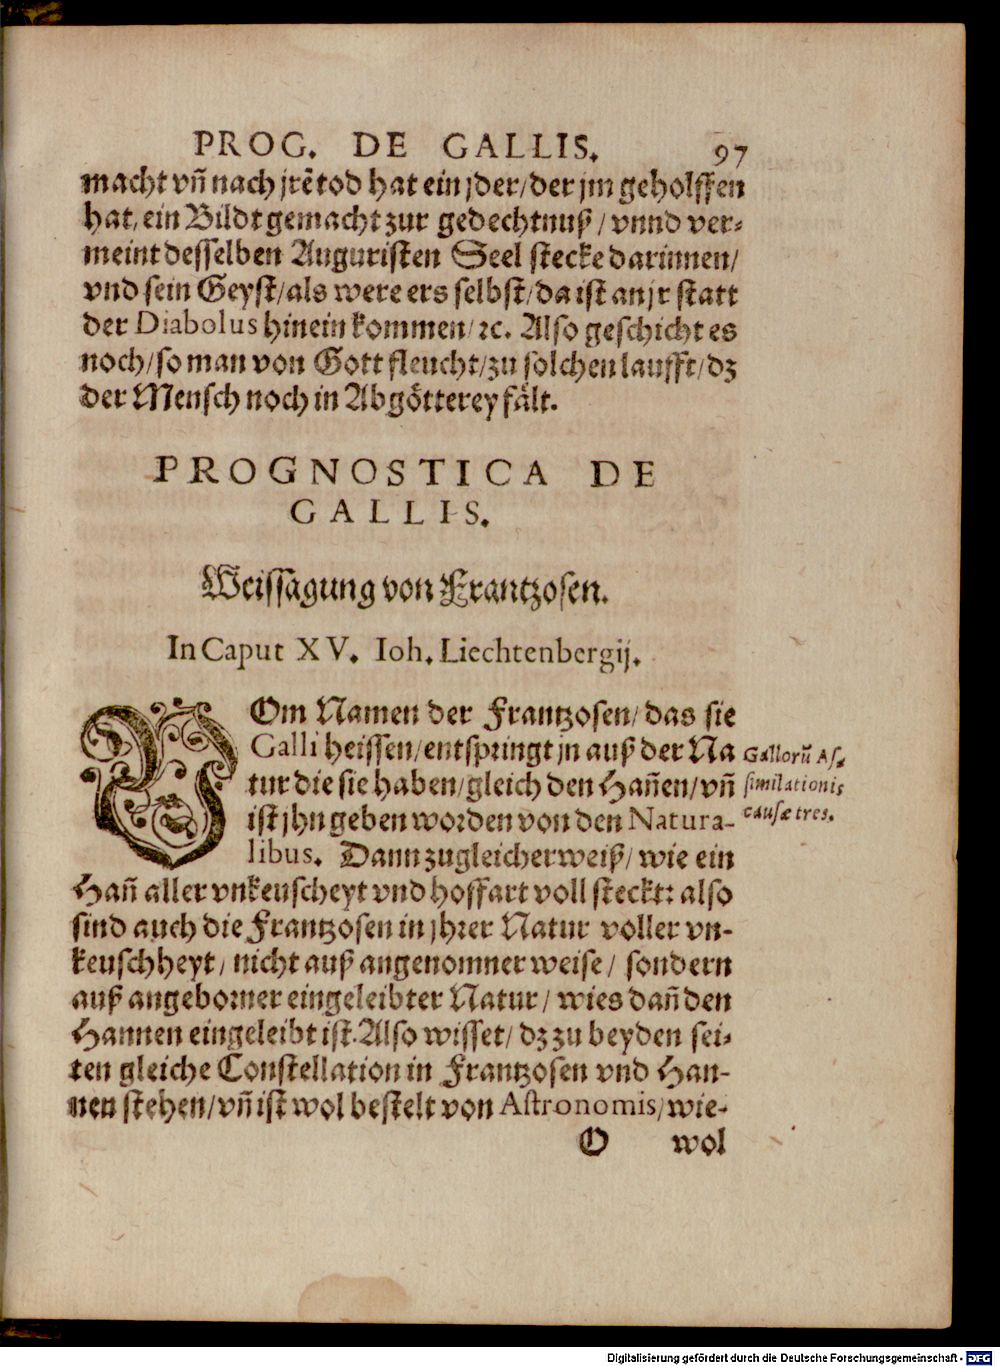 PROG. DE GALLIS. 97
macht vñ nach jrẽ tod hat ein jder/ der jm geholffen
hat, ein Bildt gemacht zur gedechtnuß / vnnd ver-
meint desselben Auguristen Seel stecke darinnen/
vnd sein Geyst/ als were ers selbst/ da ist an jr statt
der Diabolus hinein kommen/ ꝛc. Also geschicht es
noch/ so man von Gott fleucht/ zu solchen laufft/ dz
der Mensch noch in Abgötterey fält.
PROGNOSTICA DE
GALLIS.
Weissagung von Frantzosen.
In Caput XV. Ioh. Liechtenbergij.
VOm Namen der Frantzosen/ das sie
Galli heissen/ entspringt jn auß der Na
tur die sie haben/ gleich den Hañen/ vñ
ist jhn geben worden von den Natura-
libus. Dann zugleicherweiß/ wie ein
Hañ aller vnkeuscheyt vnd hoffart voll steckt: also
sind auch die Frantzosen in jhrer Natur voller vn-
keuschheyt/ nicht auß angenomner weise/ sondern
auß angeborner eingeleibter Natur/ wies dañ den
Hannen eingeleibt ist. Also wisset/ dz zu beyden sei-
ten gleiche Constellation in Frantzosen vnd Han-
nen stehen/ vñ ist wol bestelt von Astronomis/ wie-
O wol
Gallorũ As-
similationis
causæ tres.
Digitalisierung gefördert durch die Deutsche Forschungsgemeinschaft - DFG